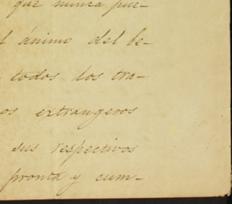 que nunca pue-
l ánimo del be-
todos los tra-
os extrangeros
sus respectivos
pronta y cum-